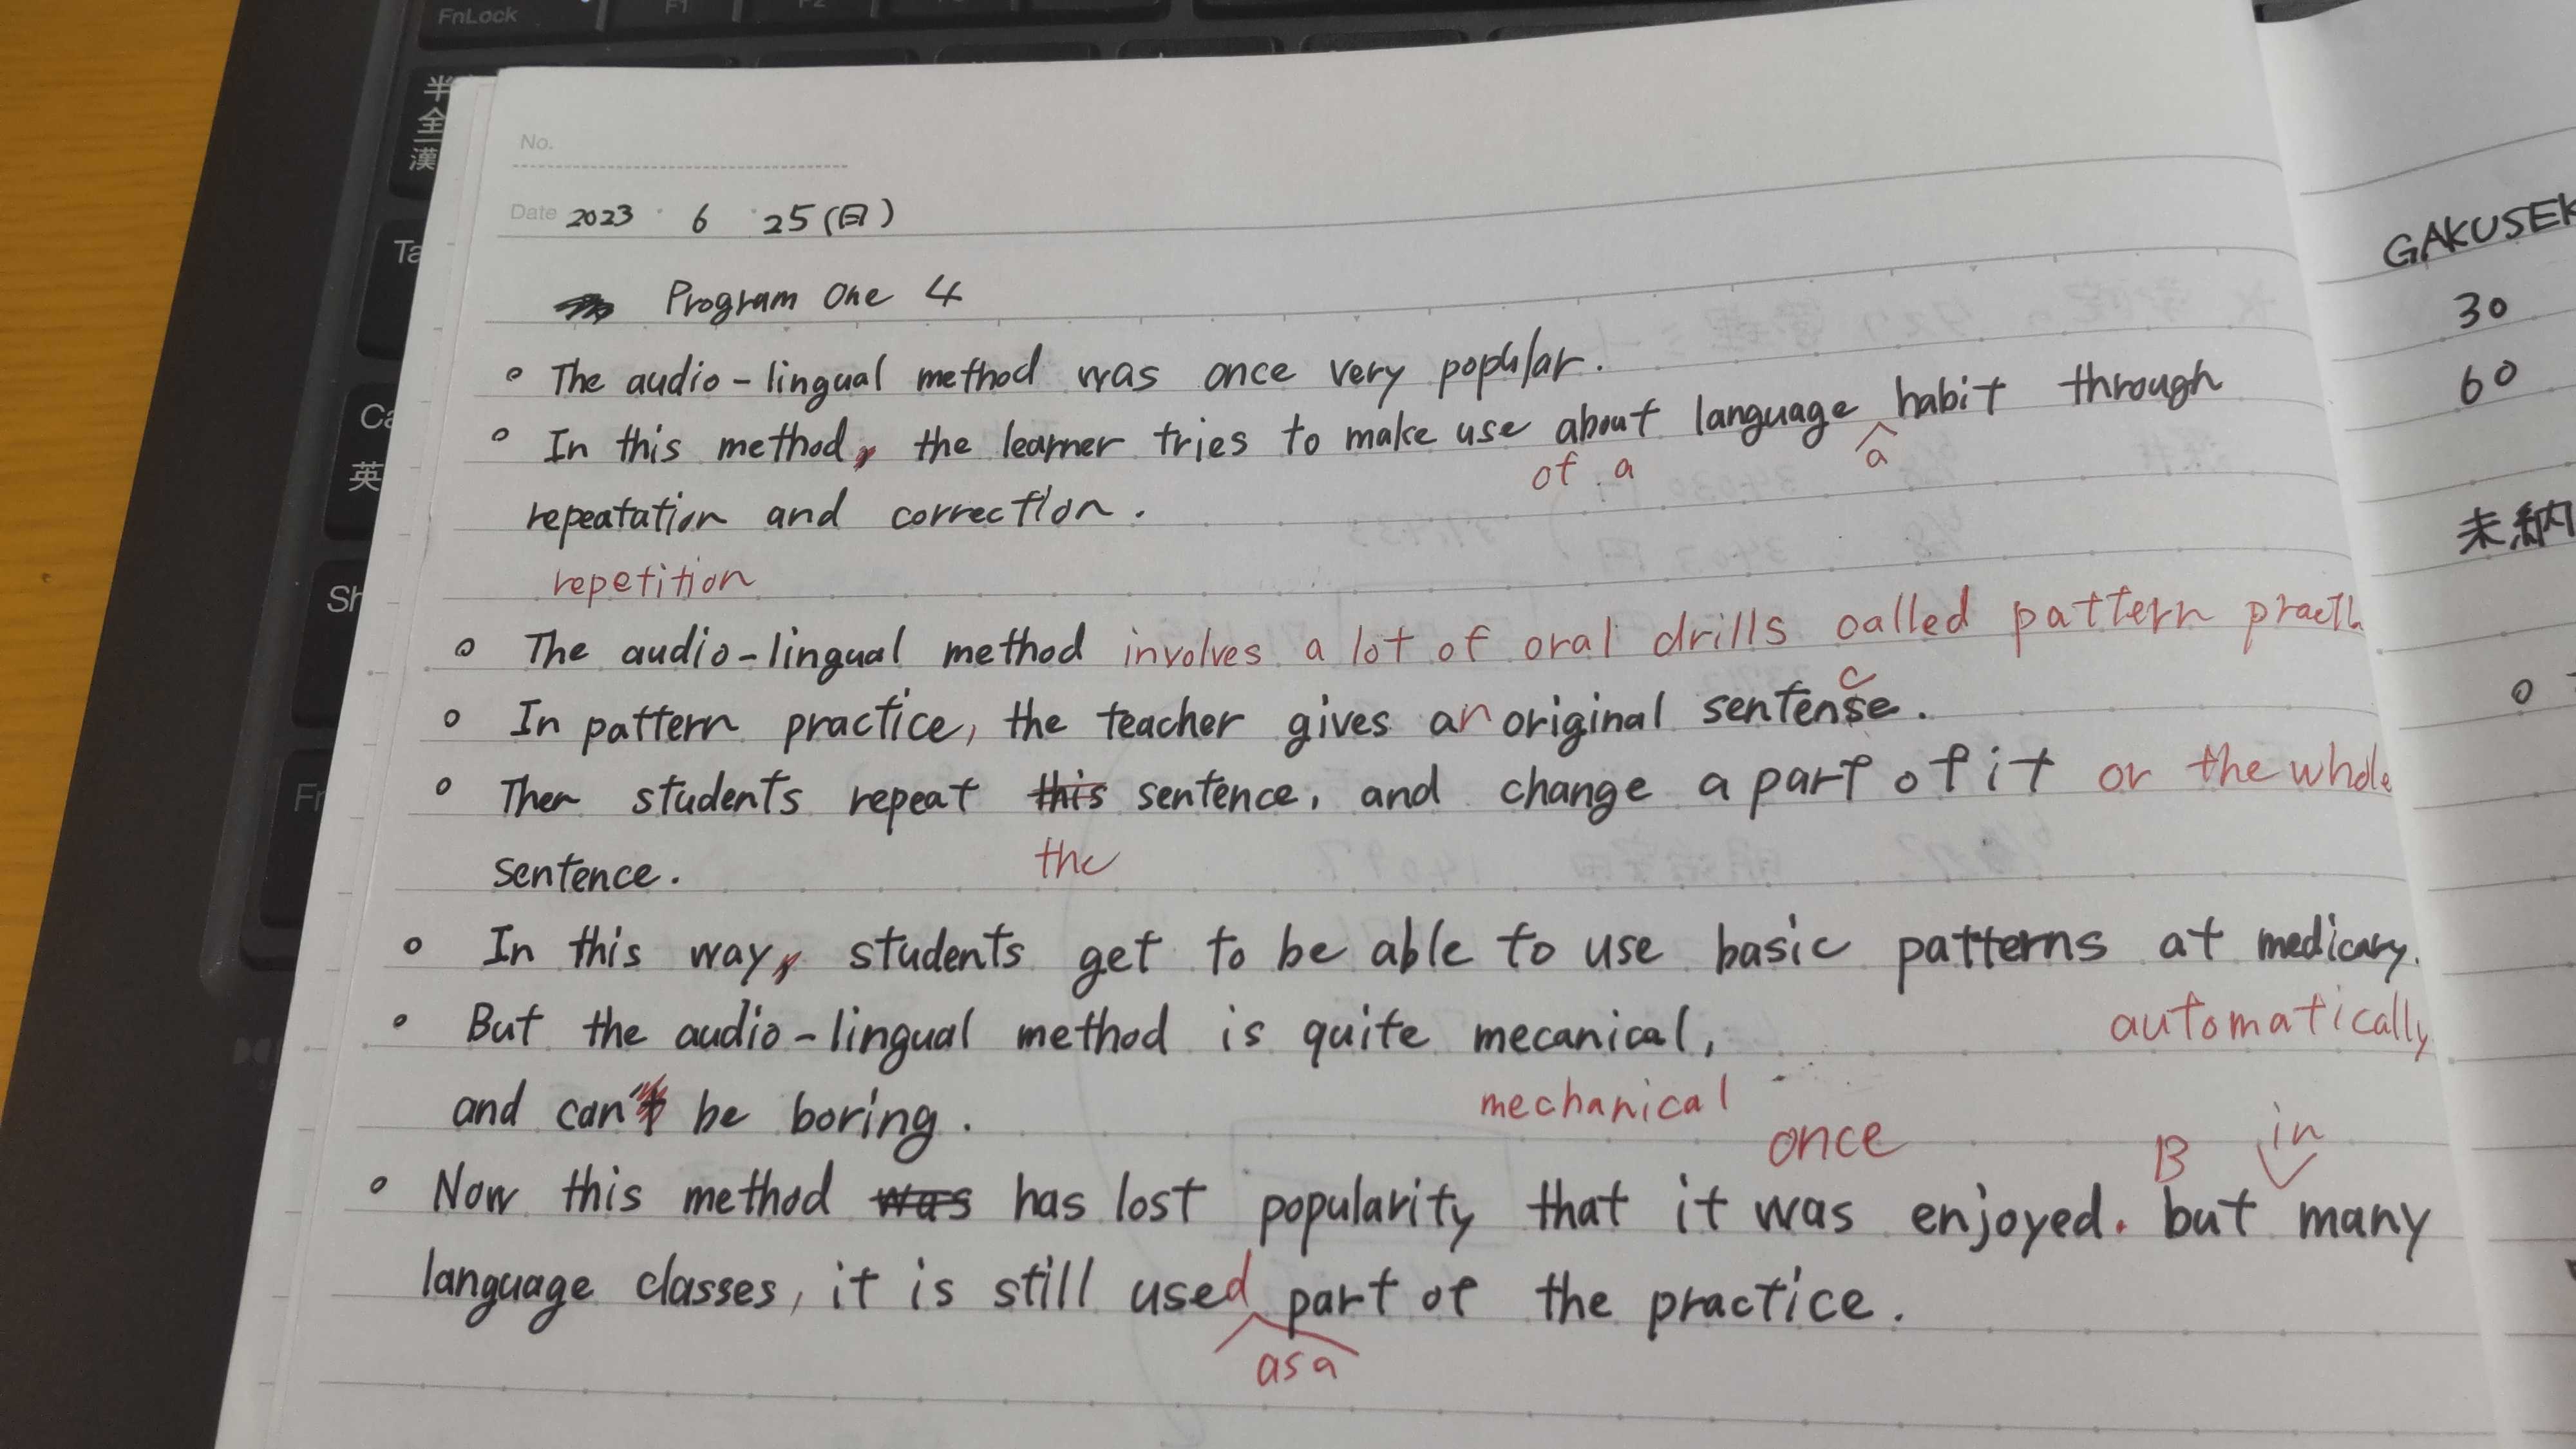 FnLock
F1
F2
半
全
漢
英
No.
Date 2023 6 25(日)
Program One 4
The audio-lingual method was once very popular.
In this method, the learner tries to make use about language habit through
of a
a
repeatation and correction.
repetition
The audio-lingual method involves a lot of oral drills called pattern
c
In pattern practice, the teacher gives an original sentense.
Then students repeat this sentence, and change a part of it or the whole
the
sentence.
In this way, students get to be able to use basic patterns at medicary.
automatically
But the audio-lingual method is quite mecanical,
mechanical
and can't be boring.
once
B
in
Now this method was has lost popularity that it was enjoyed. but many
language classes, it is still used part of the practice.
as a
GAKUSEK
30
60
未納